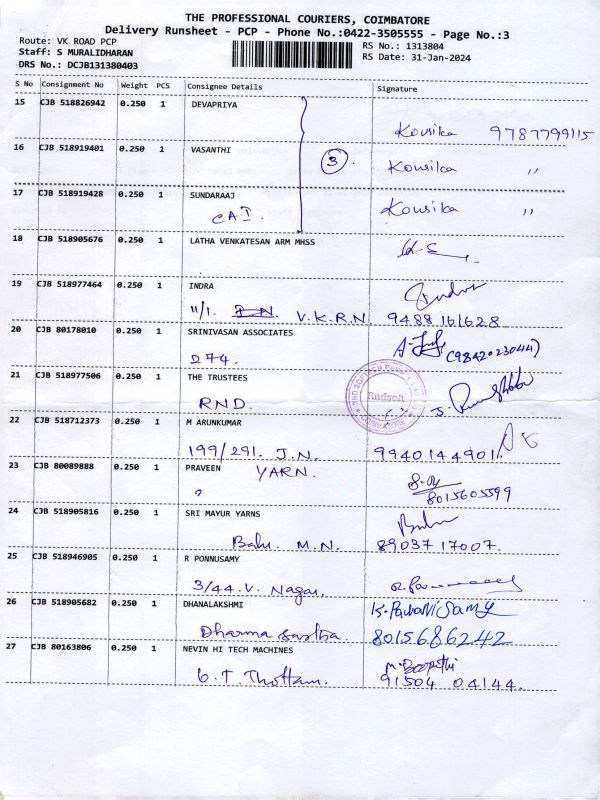 THE PROFESSIONAL COURIERS, COIMBATORE
Delivery Runsheet - PCP - Phone No.:0422-3505555 - Page No.:3
Route: VK ROAD PCP RS No.: 1313804
Staff: S MURALIDHARAN RS Date: 31-Jan-2024
DRS No.: DCJB131380403
S No Consignment No Weight PCS Consignee Details Signature
15 CJB 518826942 0.250 1 DEVAPRIYA
Kousika 9787799115
16 CJB 518919401 0.250 1 VASANTHI
3 Kousika "
17 CJB 518919428 0.250 1 SUNDARAAJ
CAI. Kousika "
18 CJB 518905676 0.250 1 LATHA VENKATESAN ARM MHSS
19 CJB 518977464 0.250 1 INDRA
Indra
11/1. V.K.R.N. 9488 161628
20 CJB 80178010 0.250 1 SRINIVASAN ASSOCIATES
274. (9842023044)
21 CJB 518977506 0.250 1 THE TRUSTEES
RND. Rndsoft COIMBATORE
22 CJB 518712373 0.250 1 M ARUNKUMAR
199/291. J.N. 9940144901
23 CJB 80089888 0.250 1 PRAVEEN YARN.
8015605599
24 CJB 518905816 0.250 1 SRI MAYUR YARNS
Babu M.N. 89037 17007.
25 CJB 518946905 0.250 1 R PONNUSAMY
3/44. V. Nagar.
26 CJB 518905682 0.250 1 DHANALAKSHMI
Dharma Sastha 8015686242
27 CJB 80163806 0.250 1 NEVIN HI TECH MACHINES
M. Boopathi
G.T. Thottam. 91504 04144.